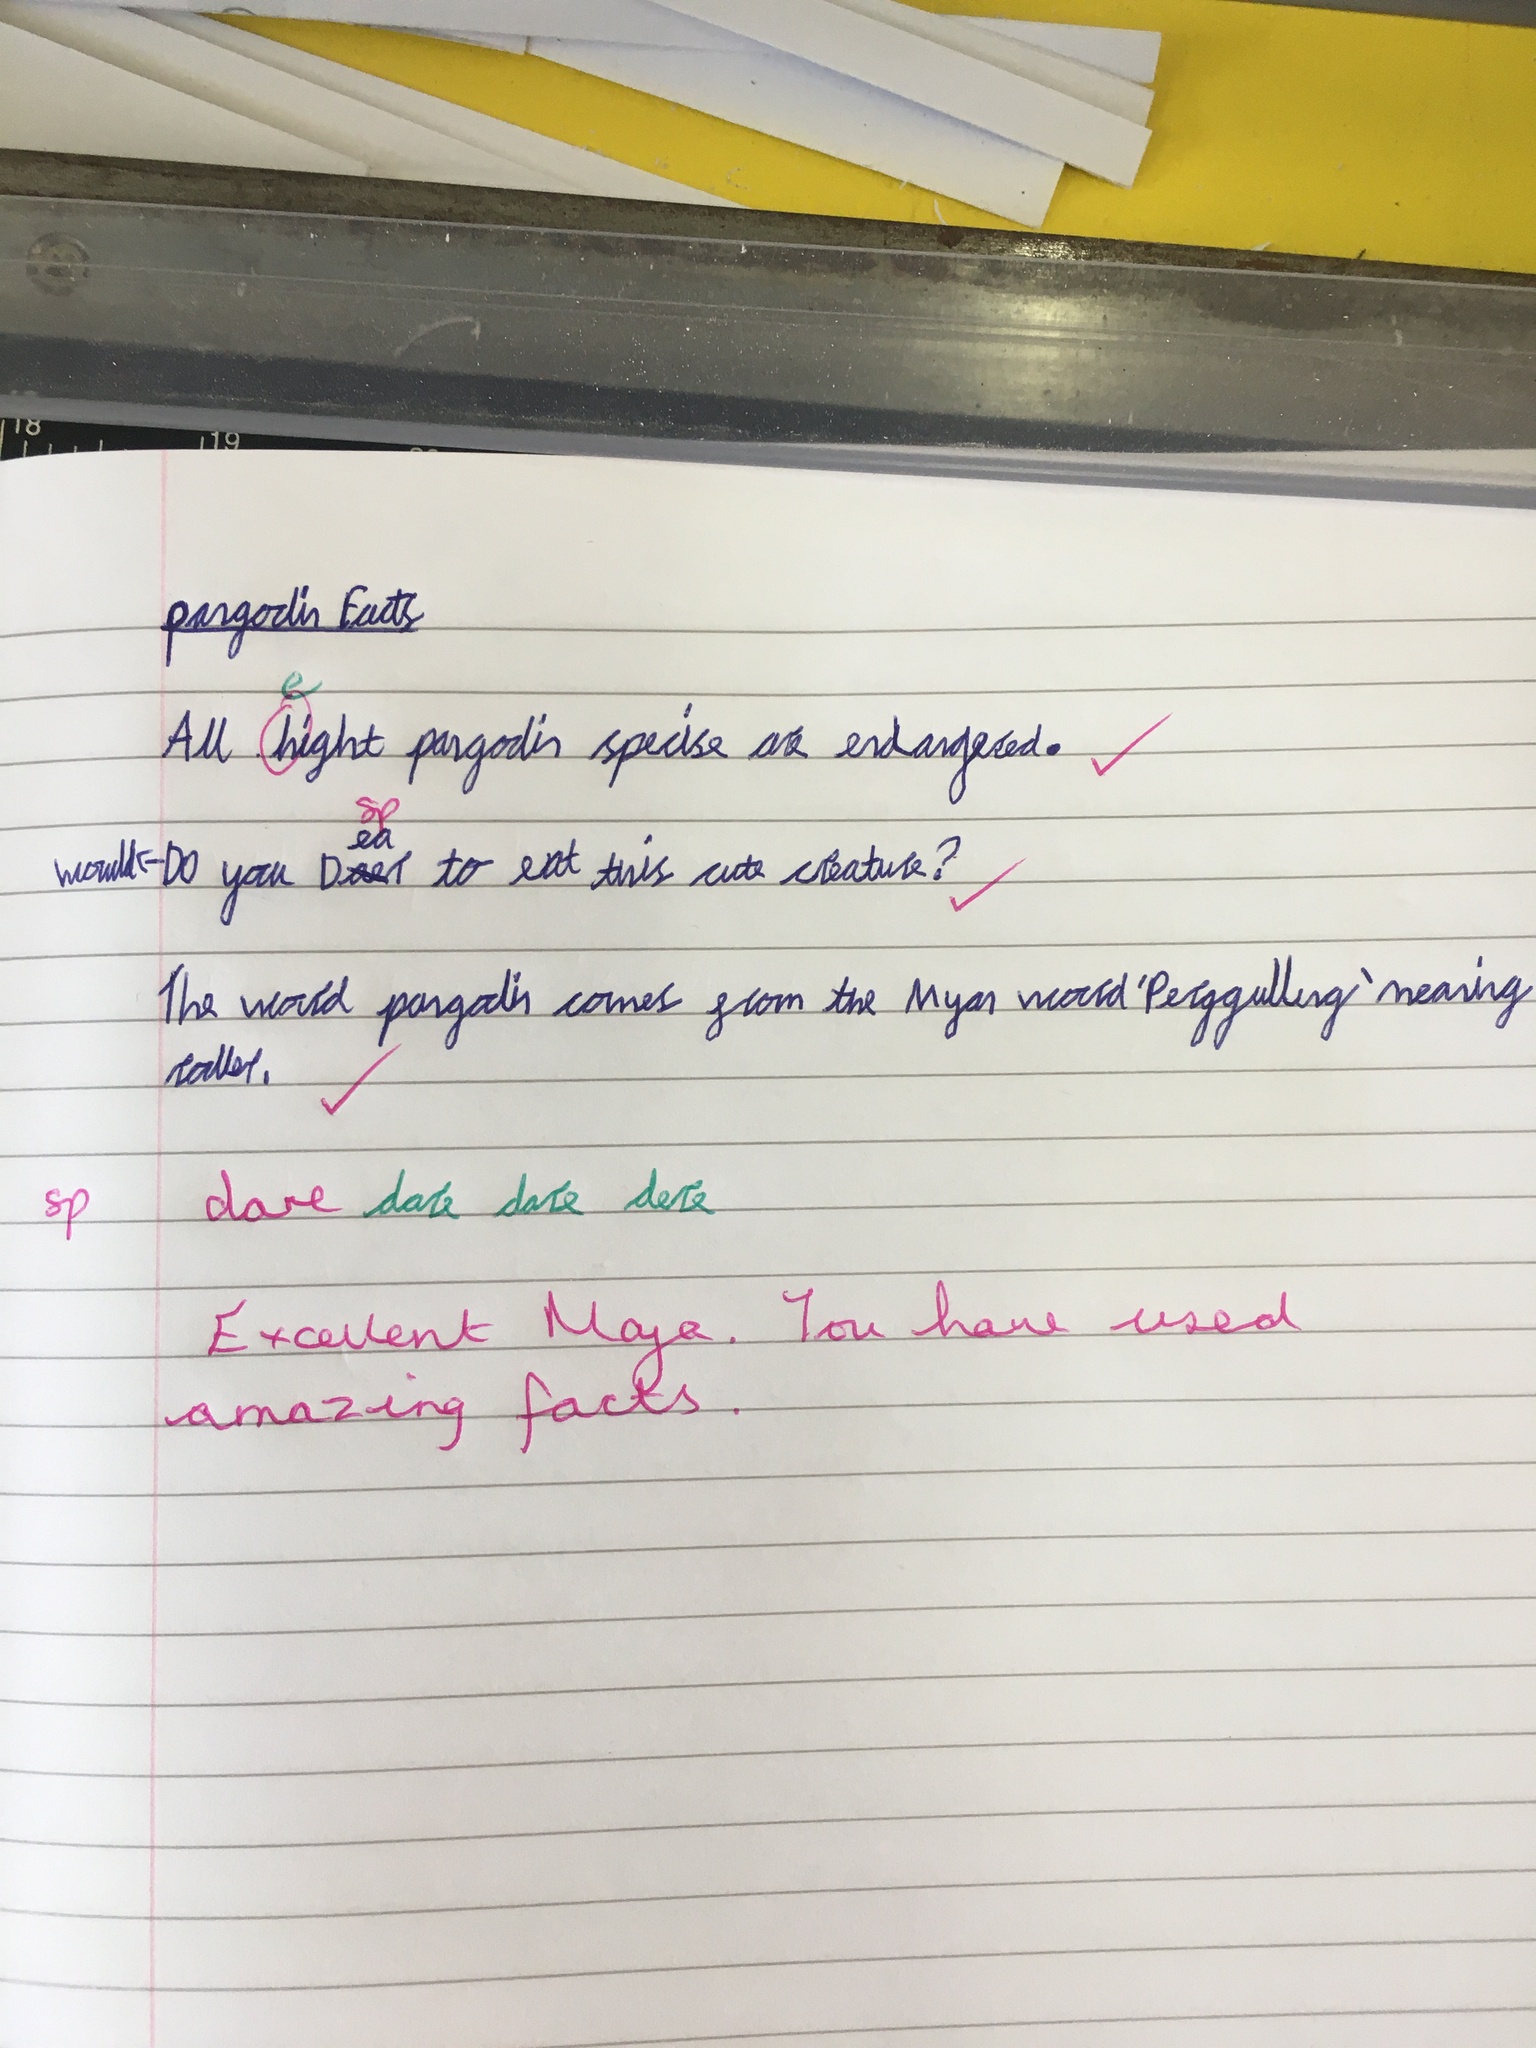 18 19
pangodin Facts
e
All hight pangodin specise are endangered.
sp
ea
would- Do you Daer to eat this cute creature?
The world pangodin comes from the Myan world 'Perggulling' meaning
roller.
sp dare dare dare dere
Excellent Maya. You have used
amazing facts.